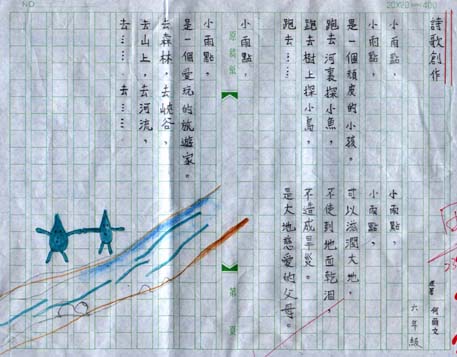 NO.
20X20=400
詩歌創作
六年級
小雨點，
小雨點，
是一個頑皮的小孩，
跑去河裏探小魚，
跑去樹上探小鳥，
跑去……
小雨點，
小雨點，
可以滋潤大地，
不使到地面乾涸，
不造成旱災。
是大地慈愛的父母。
原稿紙
第 頁
小雨點，
小雨點，
是一個愛玩的旅遊家。
去森林，去峽谷，
去山上，去河流，
去……去……